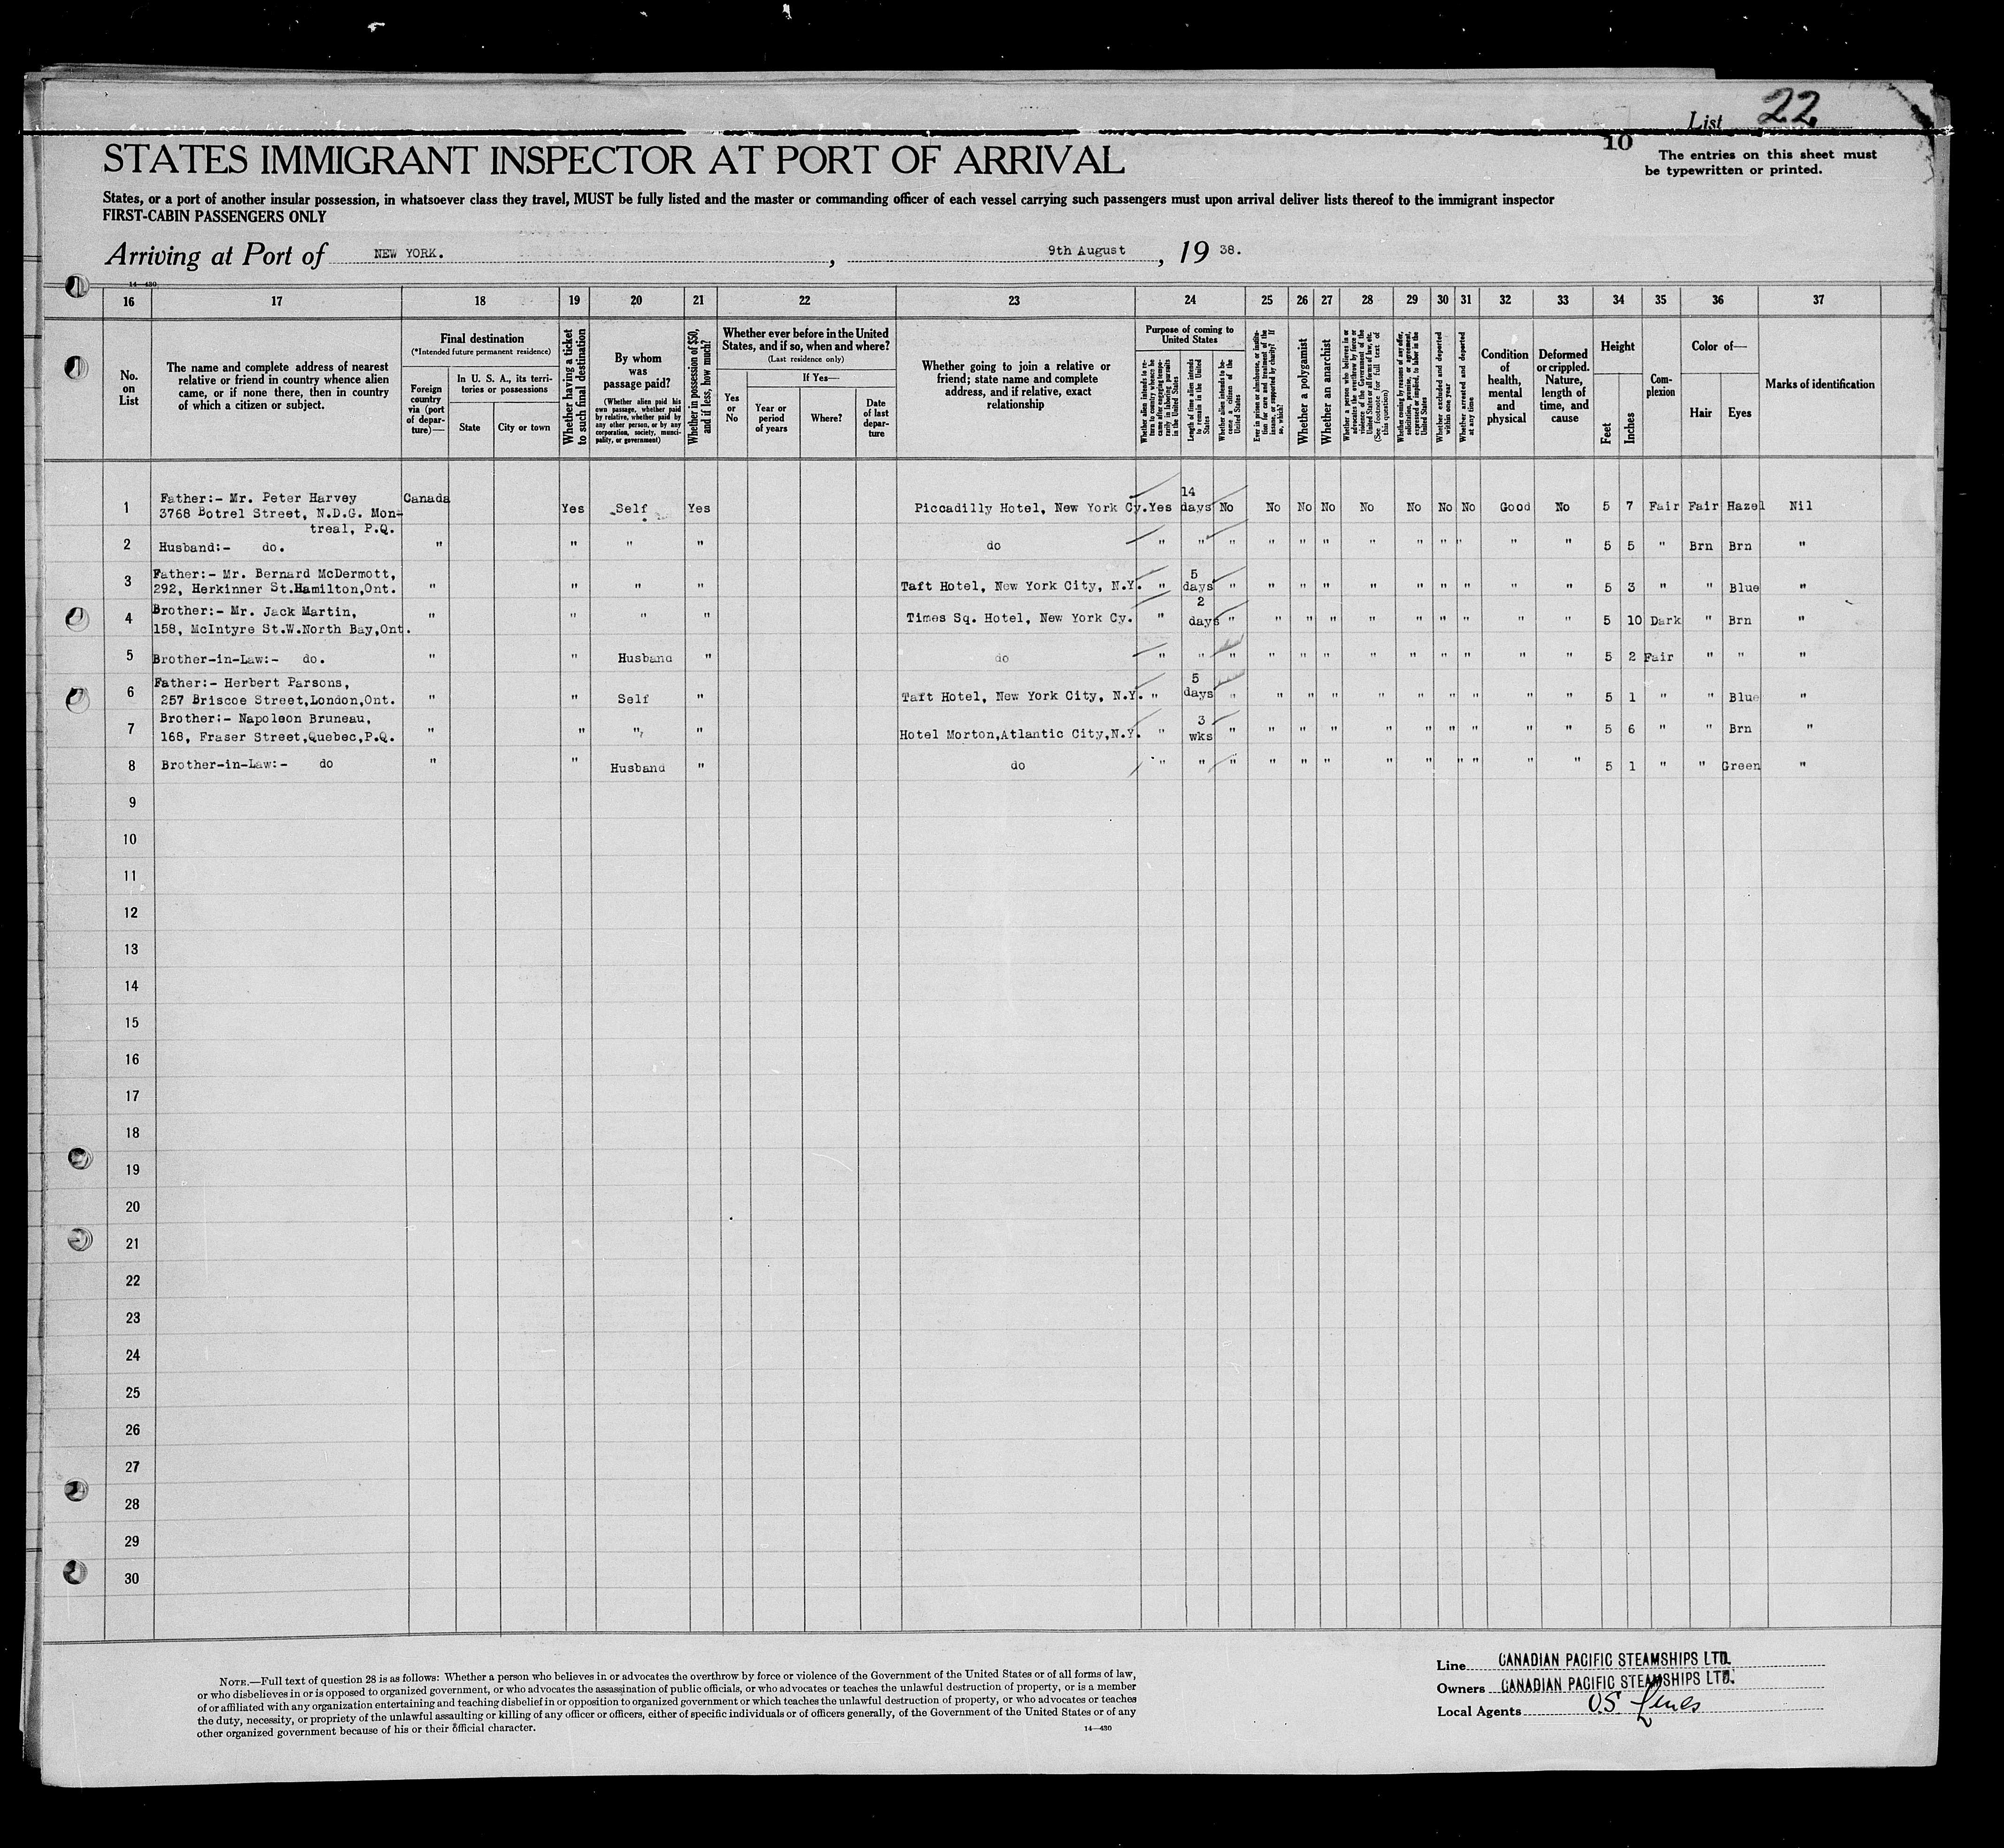 List 22
10
STATES IMMIGRANT INSPECTOR AT PORT OF ARRIVAL
The entries on this sheet must
be typewritten or printed.
States, or a port of another insular possession, in whatsoever class they travel, MUST be fully listed and the master or commanding officer of each vessel carrying such passengers must upon arrival deliver lists thereof to the immigrant inspector
FIRST-CABIN PASSENGERS ONLY
Arriving at Port of NEW YORK. , 9th August , 19 38.
14—430
16 17 18 19 20 21 22 23 24 25 26 27 28 29 30 31 32 33 34 35 36 37
No. on List
The name and complete address of nearest relative or friend in country whence alien came, or if none there, then in country of which a citizen or subject.
Final destination
(*Intended future permanent residence)
Foreign country via (port of departure)—
In U. S. A., its territories or possessions
State
City or town
Whether having a ticket to such final destination
By whom was passage paid?
(Whether alien paid his own passage, whether paid by relative, whether paid by any other person, or by any corporation, society, municipality, or government)
Whether in possession of $50, and if less, how much?
Whether ever before in the United States, and if so, when and where?
(Last residence only)
Yes or No
If Yes—
Year or period of years
Where?
Date of last departure
Whether going to join a relative or friend; state name and complete address, and if relative, exact relationship
Purpose of coming to United States
Whether alien intends to return to country whence he came after engaging temporarily in laboring pursuits in the United States
Length of time alien intends to remain in the United States
Whether alien intends to become a citizen of the United States
Ever in prison or almshouse, or institution for care and treatment of the insane, or supported by charity? If so, which?
Whether a polygamist
Whether an anarchist
Whether a person who believes in or advocates the overthrow by force or violence of the Government of the United States or all forms of law, etc. (See footnote for full text of this question)
Whether coming by reason of any offer, solicitation, promise, or agreement, expressed or implied, to labor in the United States
Whether excluded and deported within one year
Whether arrested and deported at any time
Condition of health, mental and physical
Deformed or crippled. Nature, length of time, and cause
Height
Feet
Inches
Complexion
Color of—
Hair
Eyes
Marks of identification
1 Father:- Mr. Peter Harvey Canada 14
3768 Botrel Street, N.D.G. Mon- Yes Self Yes Piccadilly Hotel, New York Cy. Yes days No No No No No No No No Good No 5 7 Fair Fair Hazel Nil
treal, P.Q.
2 Husband:- do. " " " " do " " " " " " " " " " " " 5 5 " Brn Brn "
3 Father:- Mr. Bernard McDermott, 5
292, Herkinner St.Hamilton,Ont. " " " " Taft Hotel, New York City, N.Y. " days " " " " " " " " " " 5 3 " " Blue "
4 Brother:- Mr. Jack Martin, 2
158, McIntyre St.W.North Bay,Ont. " " " " Times Sq. Hotel, New York Cy. " days " " " " " " " " " " 5 10 Dark " Brn "
5 Brother-in-Law:- do. " " Husband " do " " " " " " " " " " " " 5 2 Fair " " "
6 Father:- Herbert Parsons, 5
257 Briscoe Street,London,Ont. " " Self " Taft Hotel, New York City, N.Y. " days " " " " " " " " " " 5 1 " " Blue "
7 Brother:- Napoleon Bruneau, 3
168, Fraser Street,Quebec,P.Q. " " " " Hotel Morton,Atlantic City,N.Y. " wks " " " " " " " " " " 5 6 " " Brn "
8 Brother-in-Law:- do " " Husband " do " " " " " " " " " " " " 5 1 " " Green "
9
10
11
12
13
14
15
16
17
18
19
20
21
22
23
24
25
26
27
28
29
30
NOTE.—Full text of question 28 is as follows: Whether a person who believes in or advocates the overthrow by force or violence of the Government of the United States or of all forms of law,
or who disbelieves in or is opposed to organized government, or who advocates the assassination of public officials, or who advocates or teaches the unlawful destruction of property, or is a member
of or affiliated with any organization entertaining and teaching disbelief in or opposition to organized government or which teaches the unlawful destruction of property, or who advocates or teaches
the duty, necessity, or propriety of the unlawful assaulting or killing of any officer or officers, either of specific individuals or of officers generally, of the Government of the United States or of any
other organized government because of his or their official character.
14—430
Line CANADIAN PACIFIC STEAMSHIPS LTD.
Owners CANADIAN PACIFIC STEAMSHIPS LTD.
Local Agents U.S. Lines